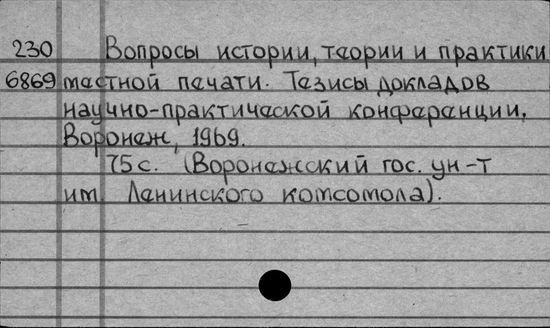 230 Вопросы истории, теории и практики
6869 местной печати. Тезисы докладов
научно-практической конференции,
Воронеж, 1969.
75 с. (Воронежский гос. ун-т
им. Ленинского комсомола).